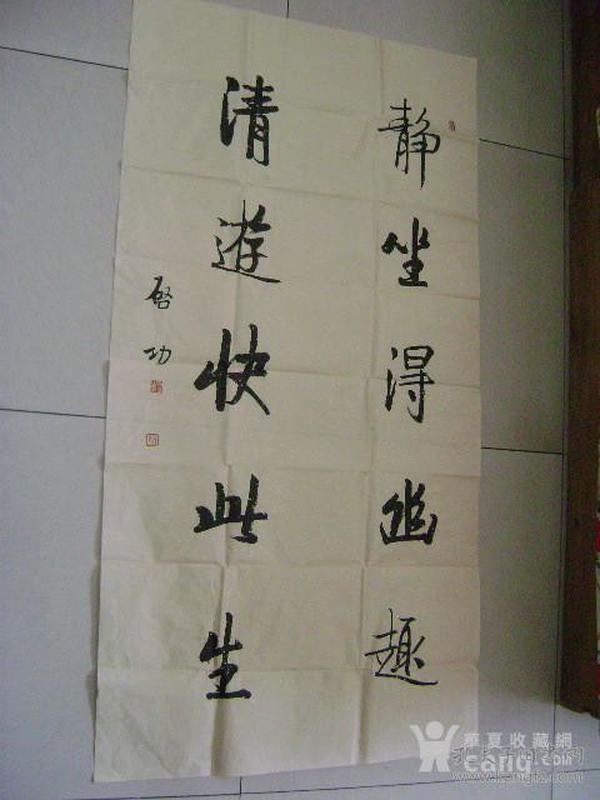 静坐得幽趣
清遊快此生
启功
華夏收藏網
cang.com